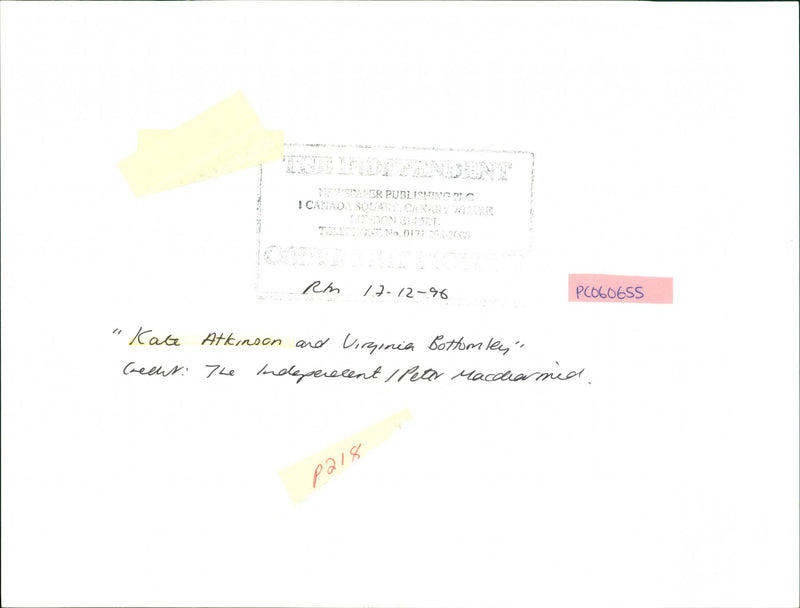 THE INDEPENDENT
NEWSPAPER PUBLISHING PLC
1 CANADA SQUARE, CANARY WHARF
LONDON E14 5DL
TELEPHONE No. 0171
COPYRIGHT
Rm 12-12-96
PC060655
"Kate Atkinson and Virginia Bottomley"
Credit: The Independent / Peter Macdiarmid.
P218